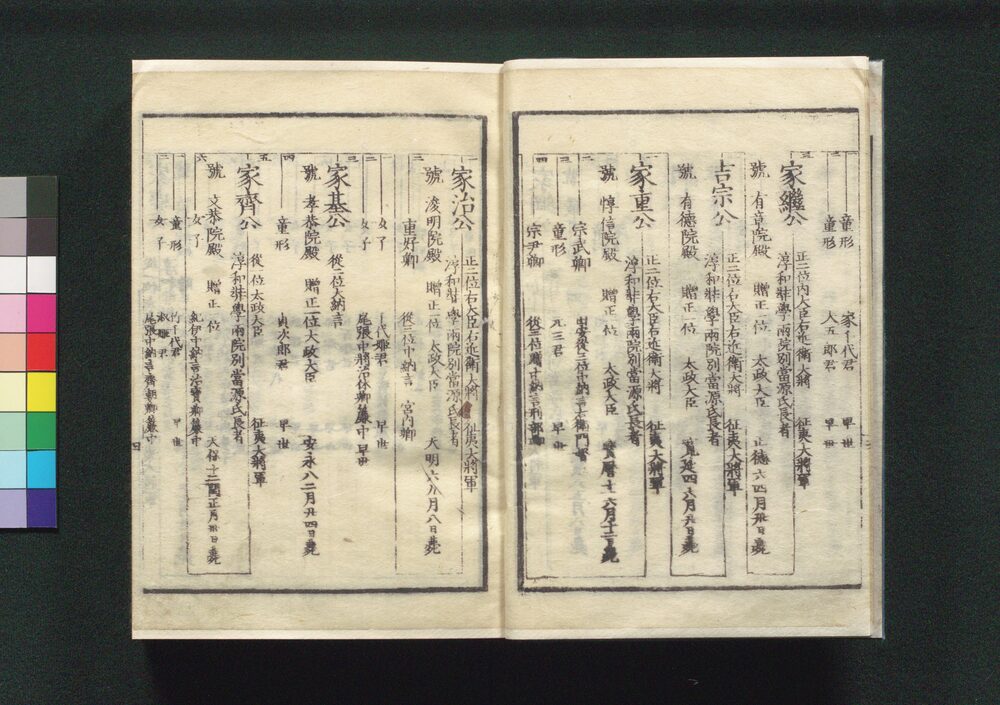 童形 家千代君 早世
童形 大五郎君 早世
家繼公 正二位内大臣右近衛大將 征夷大將軍
淳和奘學兩院別當源氏長者
號 有章院殿 贈正一位 太政大臣 正德六四月卅日薨
吉宗公 正二位右大臣右近衛大將 征夷大將軍
淳和奘學兩院別當源氏長者
號 有德院殿 贈正一位 太政大臣
家重公 正二位右大臣右近衛大將 征夷大將軍
淳和奘學兩院別當源氏長者
號 惇信院殿 贈正一位 太政大臣 寳曆十一六月十二日薨
宗武卿
童形 早世
宗尹卿
家治公 正二位右大臣右近衛大將 征夷大將軍
淳和奘學兩院別當源氏長者
號 浚明院殿 贈正一位 太政大臣 天明六九月八日薨
重好卿 從三位中納言 宮内卿
女子 千代姬君 早世
女子 尾張中將治休卿簾中 早世
家基公 從二位大納言
號 孝恭院殿 贈正一位太政大臣 安永八二月廿四日薨
童形 貞次郎君 早世
家齊公 從一位太政大臣 征夷大將軍
淳和奘學兩院別當源氏長者
號 文恭院殿 贈正一位 天保十二閏正月卅日薨
女子 紀伊中納言治寳卿簾中
童形 竹千代君 早世
女子 淑姬君 尾張中納言齊朝卿簾中
四